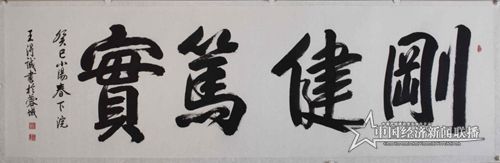 剛健篤實
癸巳小陽春下浣
王得誠書於蓉城
中国经济新闻联播